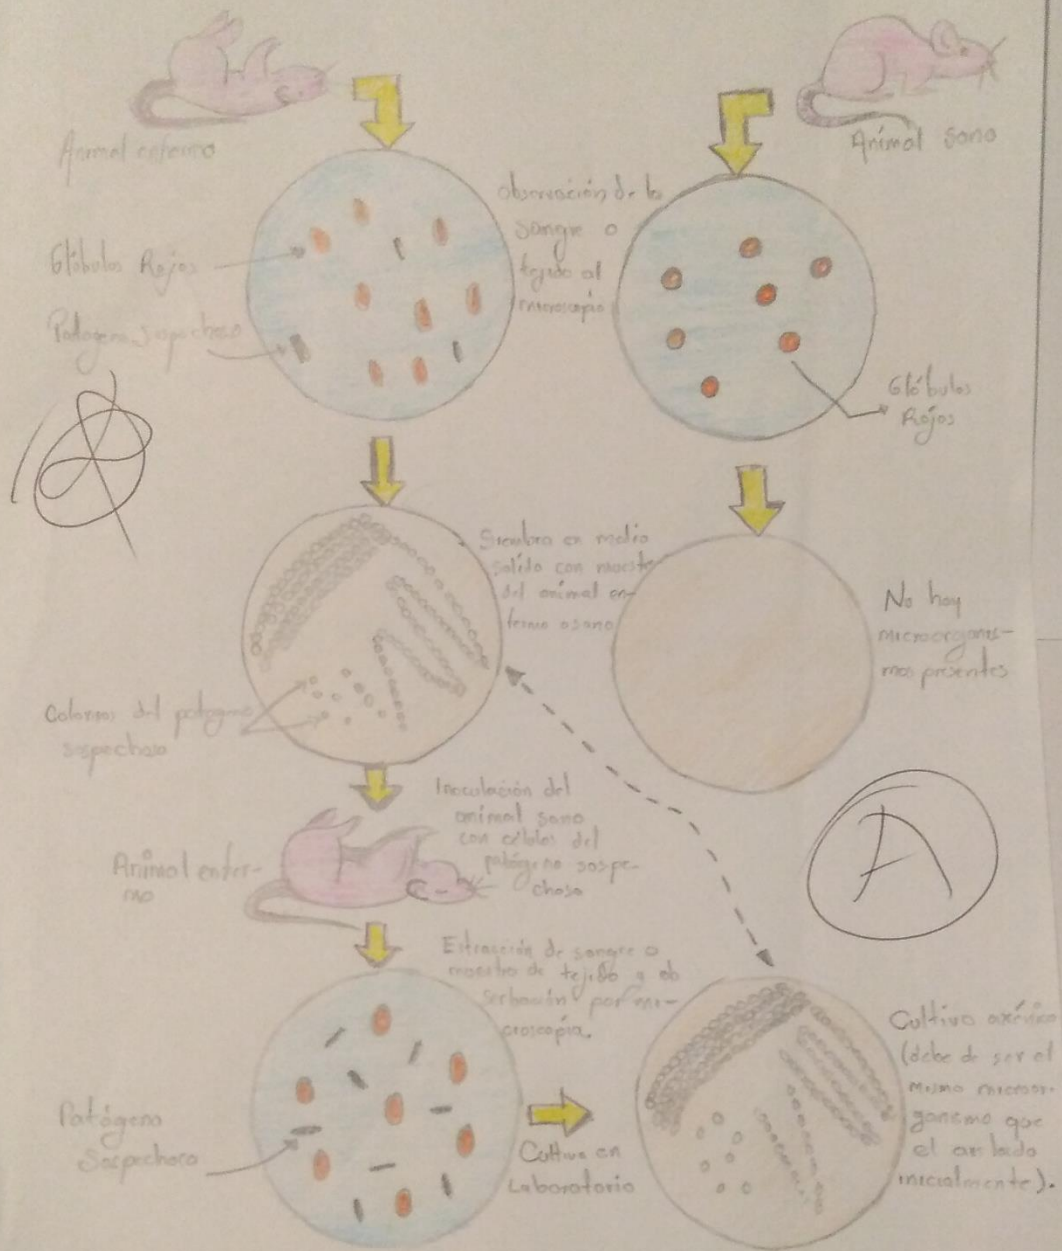 Animal enfermo
Animal sano
Observación de la
sangre o
tejido al
microscopio
Glóbulos Rojos
Patógeno Sospechoso
Glóbulos
Rojos
Siembra en medio
solido con muestr
del animal en-
fermo o sano
No hay
microorganis-
mos presentes
Colonias del patogeno
sospechoso
Inoculación del
animal sano
con células del
patógeno sospe-
choso
Animal enfer-
mo
A
Extracción de sangre o
muestra de tejido y ob
serbación por mi-
croscopía.
Cultivo axénico
(debe de ser el
mismo microor-
ganismo que
el
inicialmente).
Patógeno
Sospechoso
Cultivo en
Laboratorio